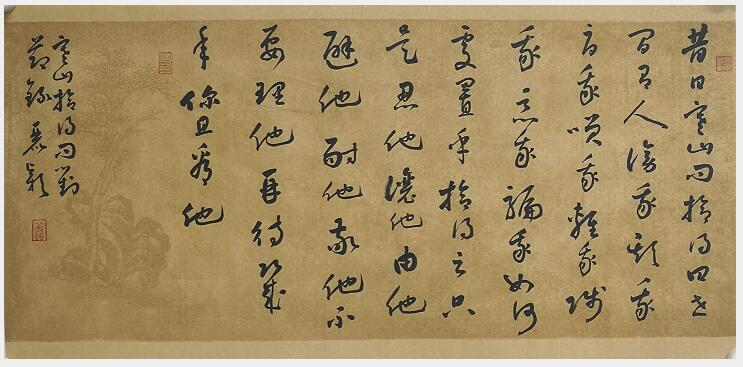 昔日寒山問拾得曰世
間有人謗我欺我
辱我笑我輕我賤
我惡我騙我如何
處置乎拾得云只
是忍他讓他由他
避他耐他敬他不
要理他再待幾
年你且看他
寒山拾得問對
節錄